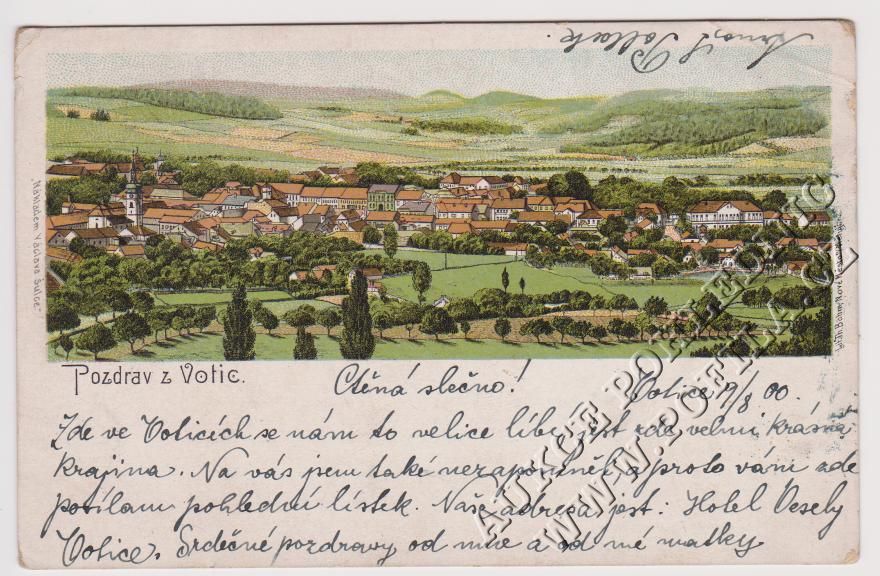 Arnošt Pollack.
Nákladem Václava Šulce
Pozdrav z Votic.
Ctěná slečno! Votice 19/8 00.
Zde ve Voticích se nám to velice líbí, jest zde velmi krásná
krajina. Na vás jsem také nezapomněl, a proto vám zde
posílam pohlední lístek. Naše adresa jest: Hotel Veselý
Votice. Srdečné pozdravy od mne a od mé matky.
AUKCE POHLEDNIC
WWW.POETA.CZ